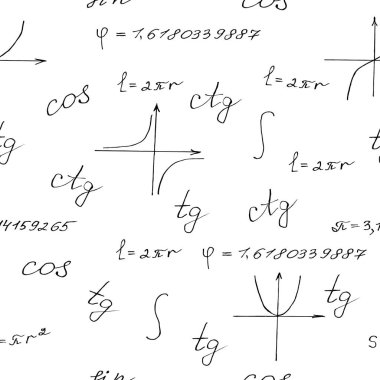 sin
cos
φ = 1,6180339887
cos
l = 2πr
ctg
l = 2πr
tg
t
l = 2πr
ctg
tg
ctg
14159265
π = 3,1
l = 2πr
φ = 1,6180339887
cos
tg
tg
= πr²
tg
S
sin
cos